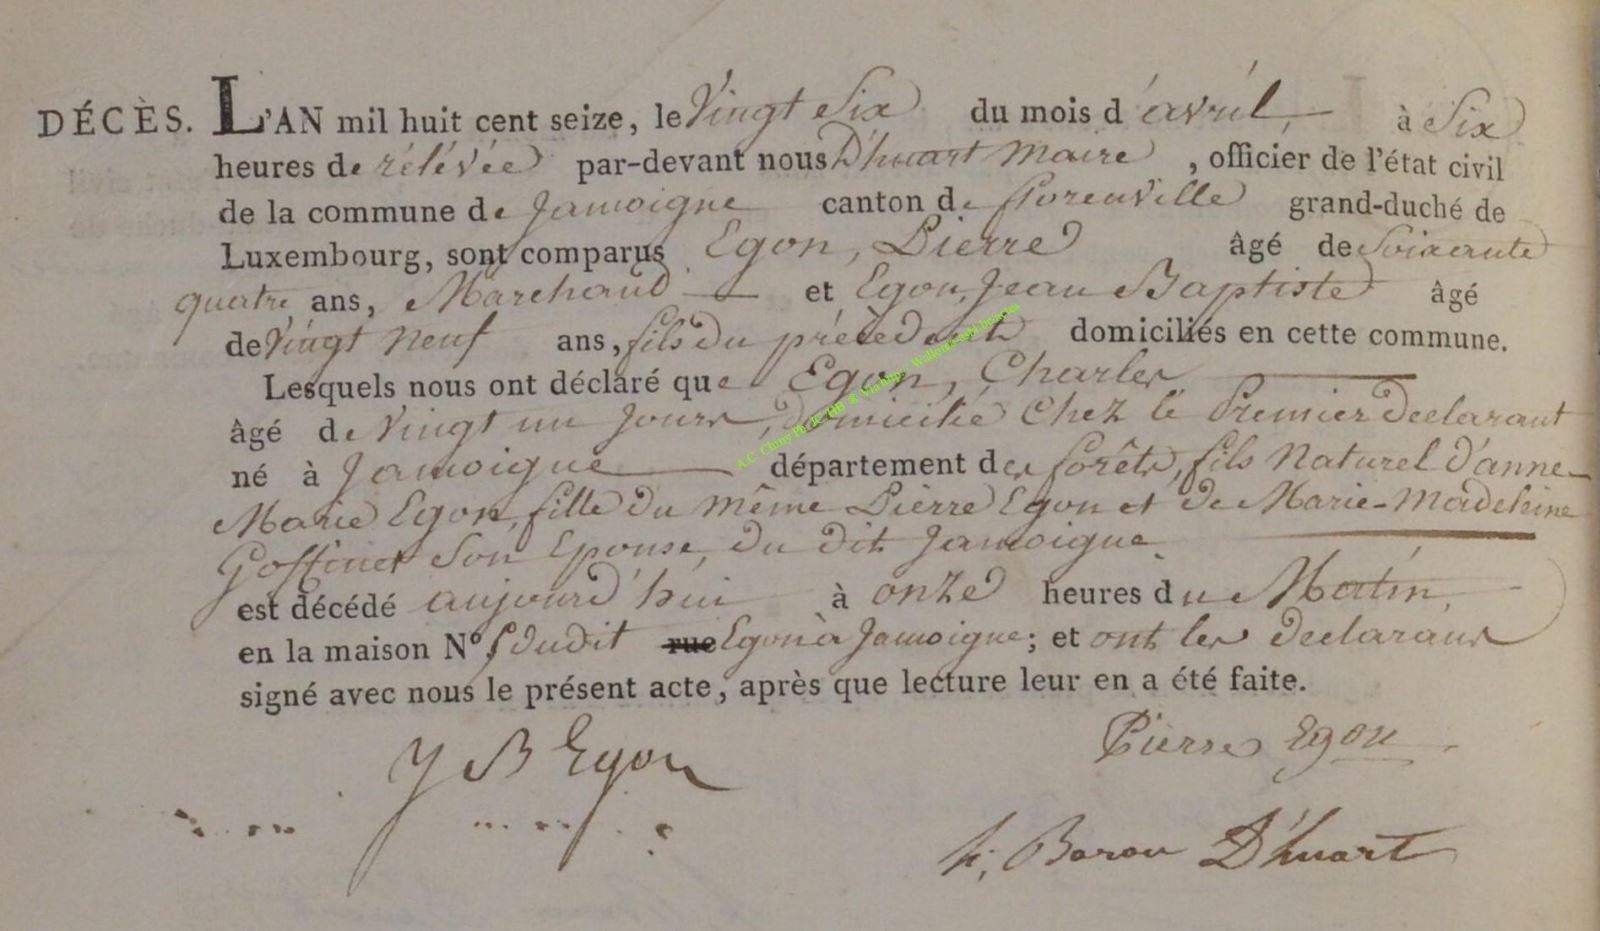 DÉCÈS. L'AN mil huit cent seize, le Vingt Six du mois d'avril, à Six
heures de rélévée par-devant nous D'huart Maire, officier de l'état civil
de la commune de Jamoigne canton de florenville grand-duché de
Luxembourg, sont comparus Egon, Pierre âgé de Soixante
quatre ans, Marchand et Egon, Jean Baptiste âgé
de Vingt Neuf ans, fils du précédent domiciliés en cette commune.
Lesquels nous ont déclaré que Egon, Charles
âgé de Vingt un Jours, domicilié Chez le Premier declarant
né à Jamoigne département des forêts, fils Naturel d'anne-
Marie Egon, fille du même Pierre Egon et de Marie-Madeleine
Goffinet Son Epouse, du dit Jamoigne.
est décédé aujourd'hui à onze heures du Matin,
en la maison N.º dudit rue Egon à Jamoigne; et ont les declarans
signé avec nous le présent acte, après que lecture leur en a été faite.
J B Egon
Pierre Egon
h, Baron D'huart